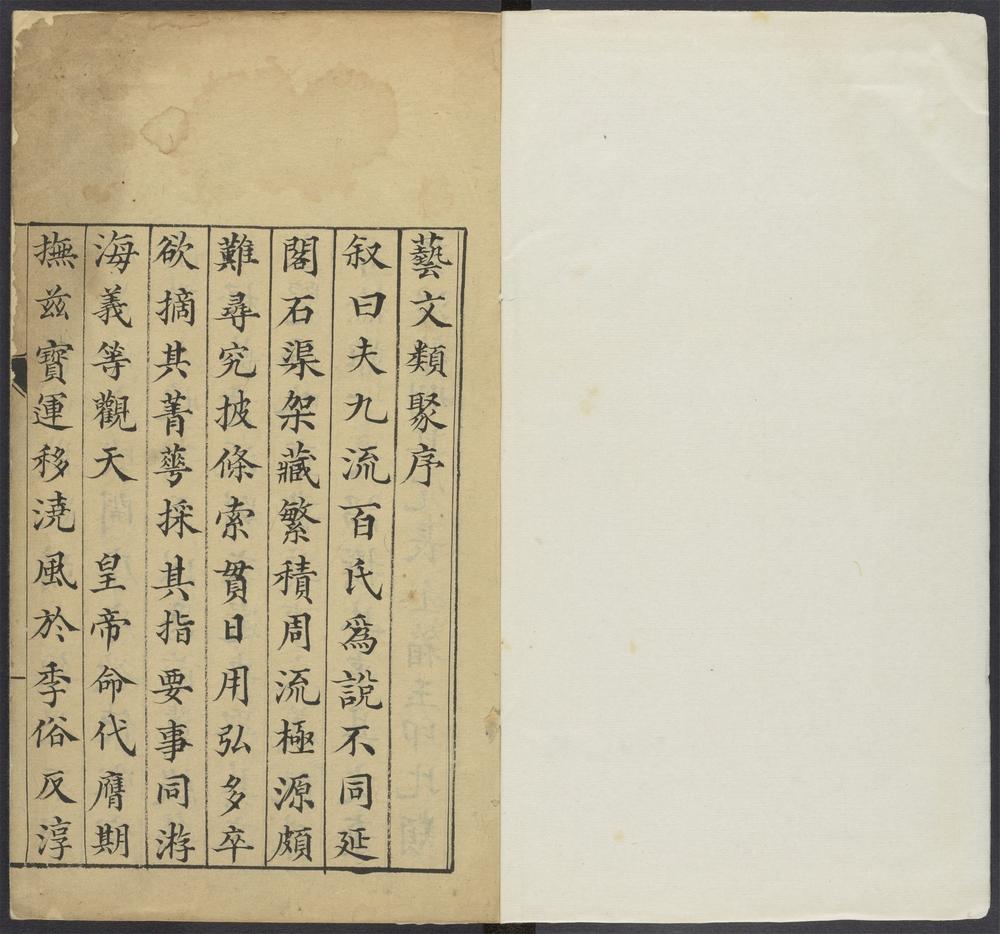 藝文類聚序
叙曰夫九流百氏為說不同延
閣石渠架藏繁積周流極源頗
難尋究披條索貫日用弘多卒
欲摘其菁華採其指要事同游
海義等觀天　皇帝命代膺期
撫茲寶運移澆風於季俗反淳